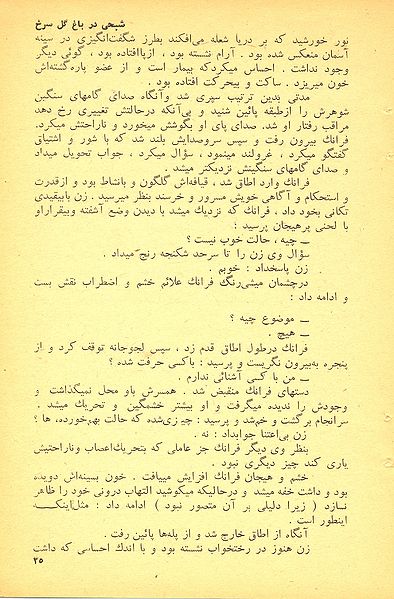 شبحی در باغ گل سرخ
نور خورشید که بر دریا شعله می‌افکند بطرز شگفت‌انگیزی در سینه
آسمان منعکس شده بود . آرام نشسته بود ، ازپاافتاده بود ، گوئی دیگر
وجود نداشت . احساس میکردکه بیمار است و از عضو پاره‌گشته‌اش
خون میریزد . ساکت و بیحرکت افتاده بود .
مدتی بدین ترتیب سپری شد وآنگاه صدای گامهای سنگین
شوهرش را ازطبقه پائین شنید و بی‌آنکه درحالتش تغییری رخ دهد
مراقب رفتار او شد. صدای پای او بگوشش میخورد و ناراحتش میکرد.
فرانك بیرون رفت و سپس سروصدایش بلند شد که با شور و اشتیاق
گفتگو میکرد ، غرولند مینمود ، سؤال میکرد ، جواب تحویل میداد
و صدای گامهای سنگینش نزدیکتر میشد .
فرانك وارد اطاق شد ، قیافه‌اش گلگون و بانشاط بود و ازقدرت
و استحکام و آگاهی خویش مسرور و خرسند بنظر میرسید . زن باییقیدی
تکانی بخود داد ، فرانك که نزدیك میشد با دیدن وضع آشفته وبیقراراو
با لحنی پرهیجان پرسید :
ــ چیه ، حالت خوب نیست ؟
سؤال وی زن را تا سرحد شکنجه رنج میداد .
زن پاسخداد : خوبم .
درچشمان میشی‌رنگ فرانك علائم خشم و اضطراب نقش بست
و ادامه داد :
ــ موضوع چیه ؟
ــ هیچ .
فرانك درطول اطاق قدم زد ، سپس لجوجانه توقف کرد و از
پنجره به‌بیرون نگریست و پرسید : باکسی حرفت شده ؟
ــ من با کسی آشنائی ندارم .
دستهای فرانك منقبض شد . همسرش باو محل نمیگذاشت و
وجودش را ندیده میگرفت و او بیشتر خشمگین و تحریك میشد .
سرانجام برگشت و خم‌شد و پرسید : چیزی‌شده که حالت بهم‌خورده، ها ؟
زن بی‌اعتنا جوابداد : نه .
بنظر وی دیگر فرانك جز عاملی که بتحریك‌اعصاب وناراحتیش
یاری کند چیز دیگری نبود .
خشم و هیجان فرانك افزایش مییافت . خون بسینه‌اش دویده
بود و داشت خفه میشد و درحالیکه میکوشید التهاب درونی خود را ظاهر
نسازد ( زیرا دلیلی بر آن متصور نبود ) ادامه داد : مثل‌اینکـه
اینطور است .
آنگاه از اطاق خارج شد و از پله‌ها پائین رفت .
زن هنوز در رختخواب نشسته بود و با اندك احساسی که داشت
۲۵